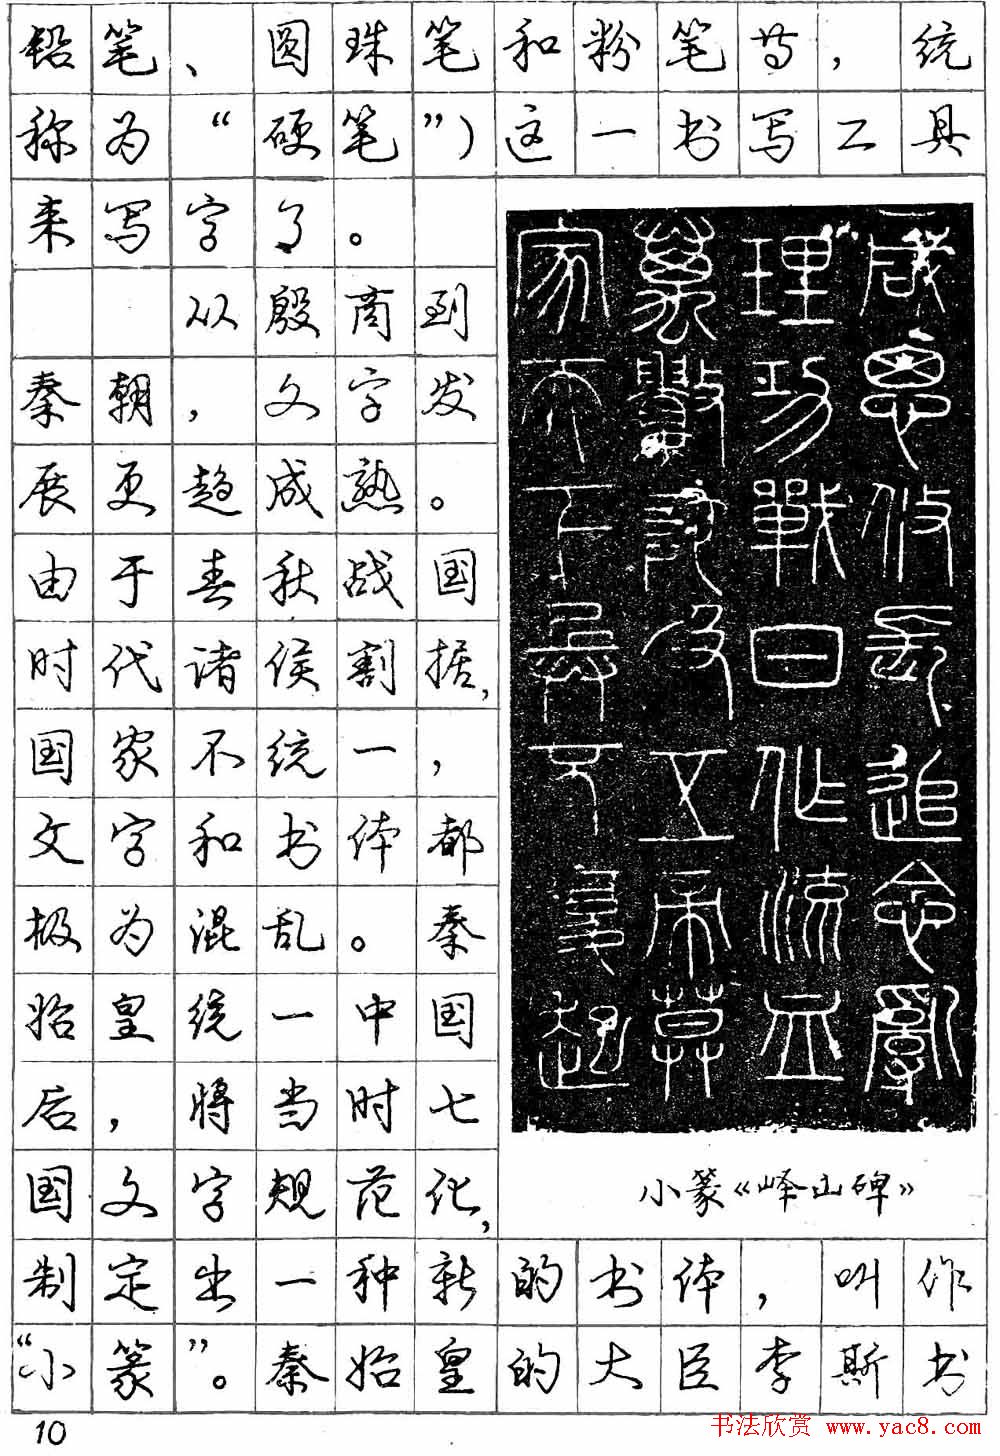 铅笔、圆珠笔和粉笔等，统
称为“硬笔”）这一书写工具
来写字了。
从殷商到
秦朝，文字发
展更趋成熟。
由于春秋战国
时代诸侯割据，
国家不统一，
文字和书体都
极为混乱。秦
始皇统一中国
后，将当时七
国文字规范化，
咸思攸長追念亂
理功戰日作流血
萬數陀及五帝莫
家天下兵不復起
小篆《峄山碑》
制定出一种新的书体，叫作
“小篆”。秦始皇的大臣李斯书
10
书法欣赏 www.yac8.com